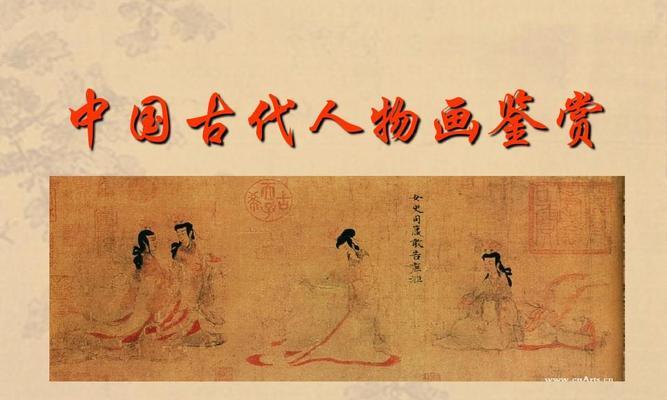 中国古代人物画鉴赏
女史司箴敢告庶姬
www.cnArts.cn